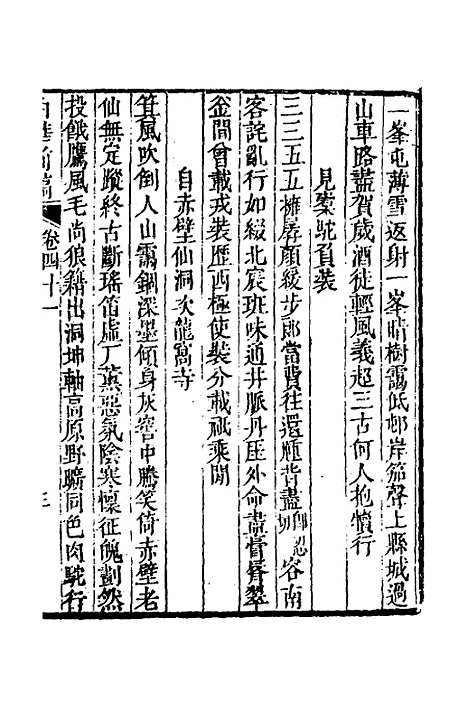 一峯屯薄雪返射一峯晴樹靄低邨岸笳聲上縣城過
山車路盡賀歲酒徒輕風義超三古何人抱犢行
見橐駝負裝
三三五五擁孱顏緩步郎當費往還順背盡如卿忍容南
客詫亂行如綴北宸班味通井脈丹厓外命盡膏脣翠
釜間曾載戎裝歷西極使裝分載祗乘閒
自赤壁仙洞次龍窩寺
箕風吹倒人山靄鋼深墨傾身灰窖中騰笑倚赤壁老
仙無定蹤終古斷瑤笛虛厂薰惡氛陰寒懍征魄劃然
投餓鷹風毛尚狼籍出洞坤軸高原野曠同色肉駝行
卷四十一
三